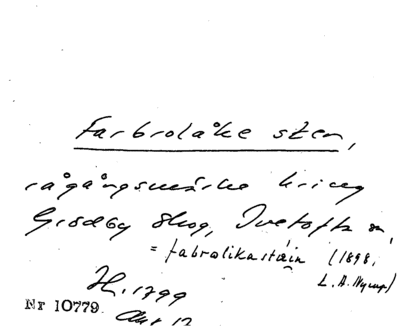 Farbrolåke sten,
rågångsmärke kring
Grödby Skog, Ivetofta sn,
= fabralikastäin (1898,
L. A. Nyrup)
H. 1799
Nr 10779.
Akt 12